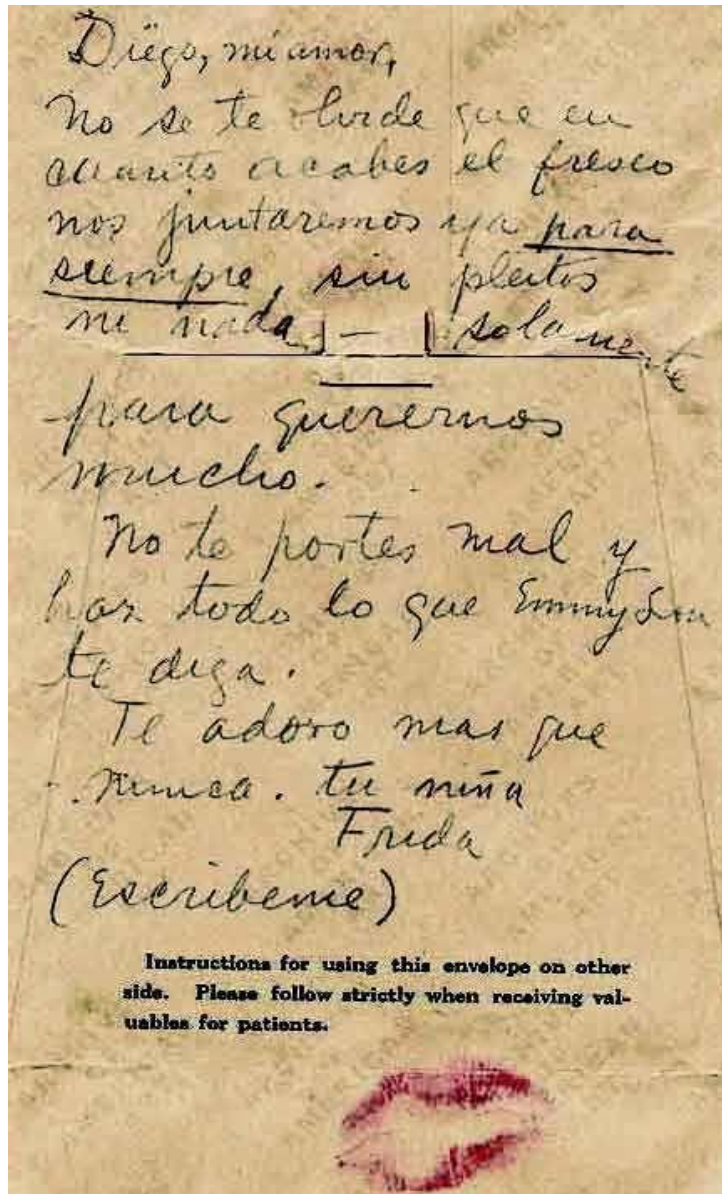 Diego, mi amor,
No se te olvide que en
cuanto acabes el fresco
nos juntaremos ya para
siempre, sin pleitos
ni nada - solamente
para querernos
mucho.
No te portes mal y
haz todo lo que Emmy Lou
te diga.
Te adoro mas que
nunca. tu niña
Frida
(Escribeme)
Instructions for using this envelope on other
side. Please follow strictly when receiving val-
uables for patients.